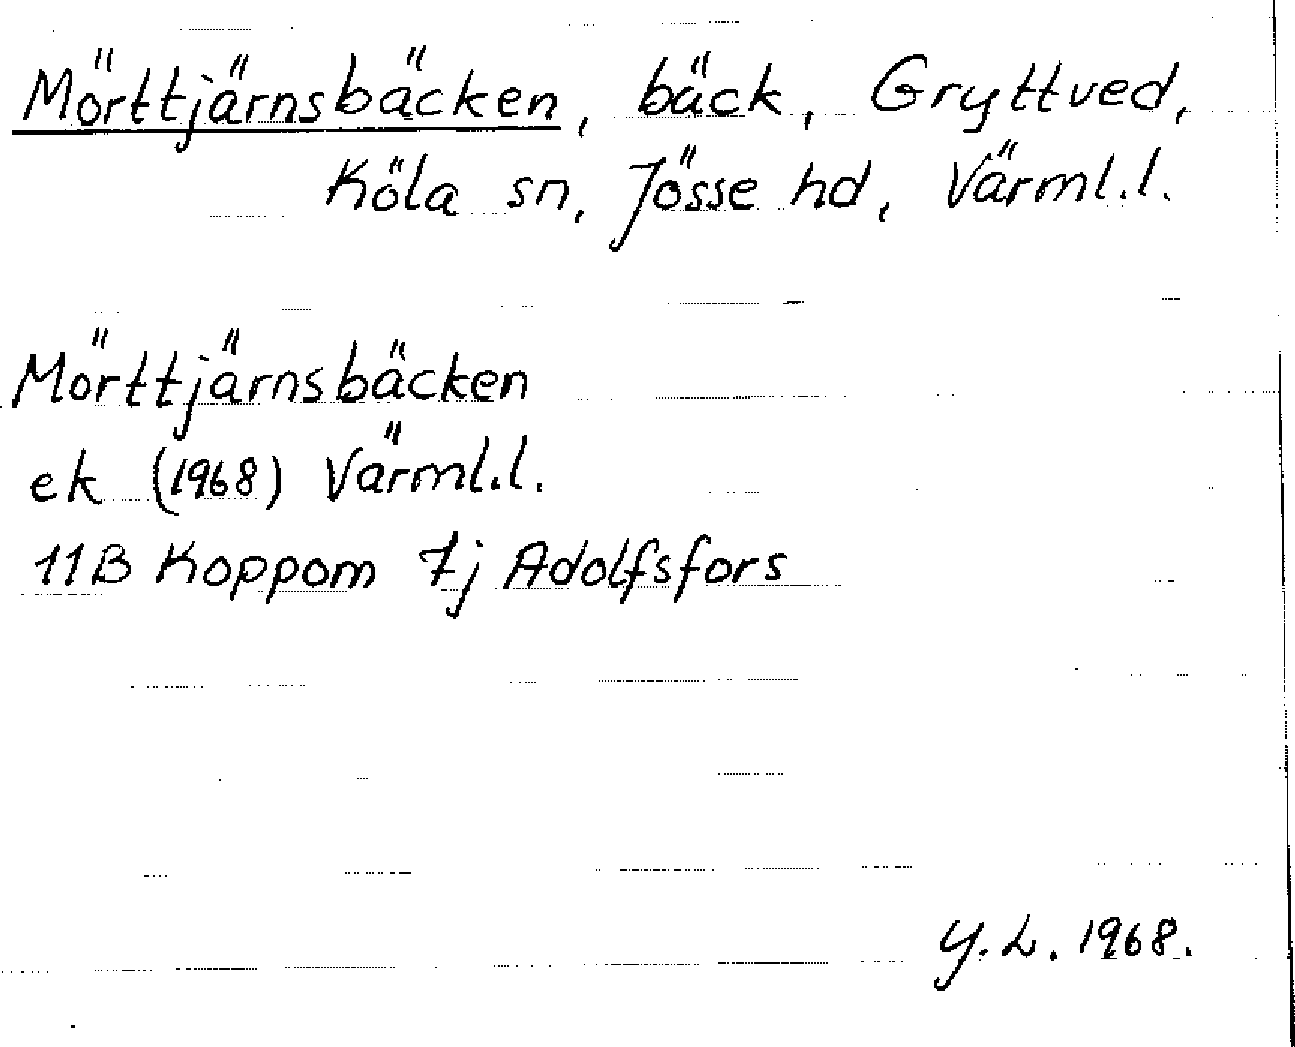 Mörttjärnsbäcken, bäck, Gryttved,
Köla sn, Jösse hd, Värml.l.
Mörttjärnsbäcken
ek (1968) Värml.l.
11B Koppom 7j Adolfsfors
Y.L. 1968.